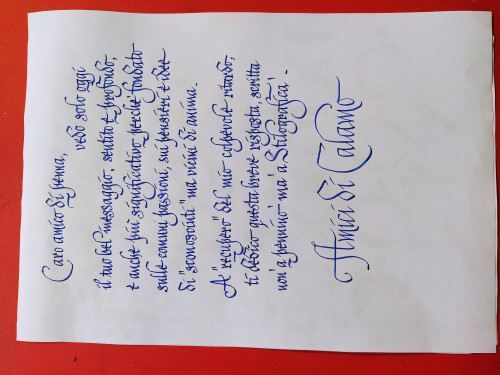 Caro amico di penna,
vedo solo oggi
il tuo bel messaggio, sentito e profondo,
e anche più significativo perché fondato
sulle comuni passioni, sui pensieri e idee
di "sconosciuti" ma vicini di anima.
A "recupero" del mio colpevole ritardo,
ti dedico questa breve risposta, scritta
non "a pennino" ma "a Stilografica".
Amici di Calamo